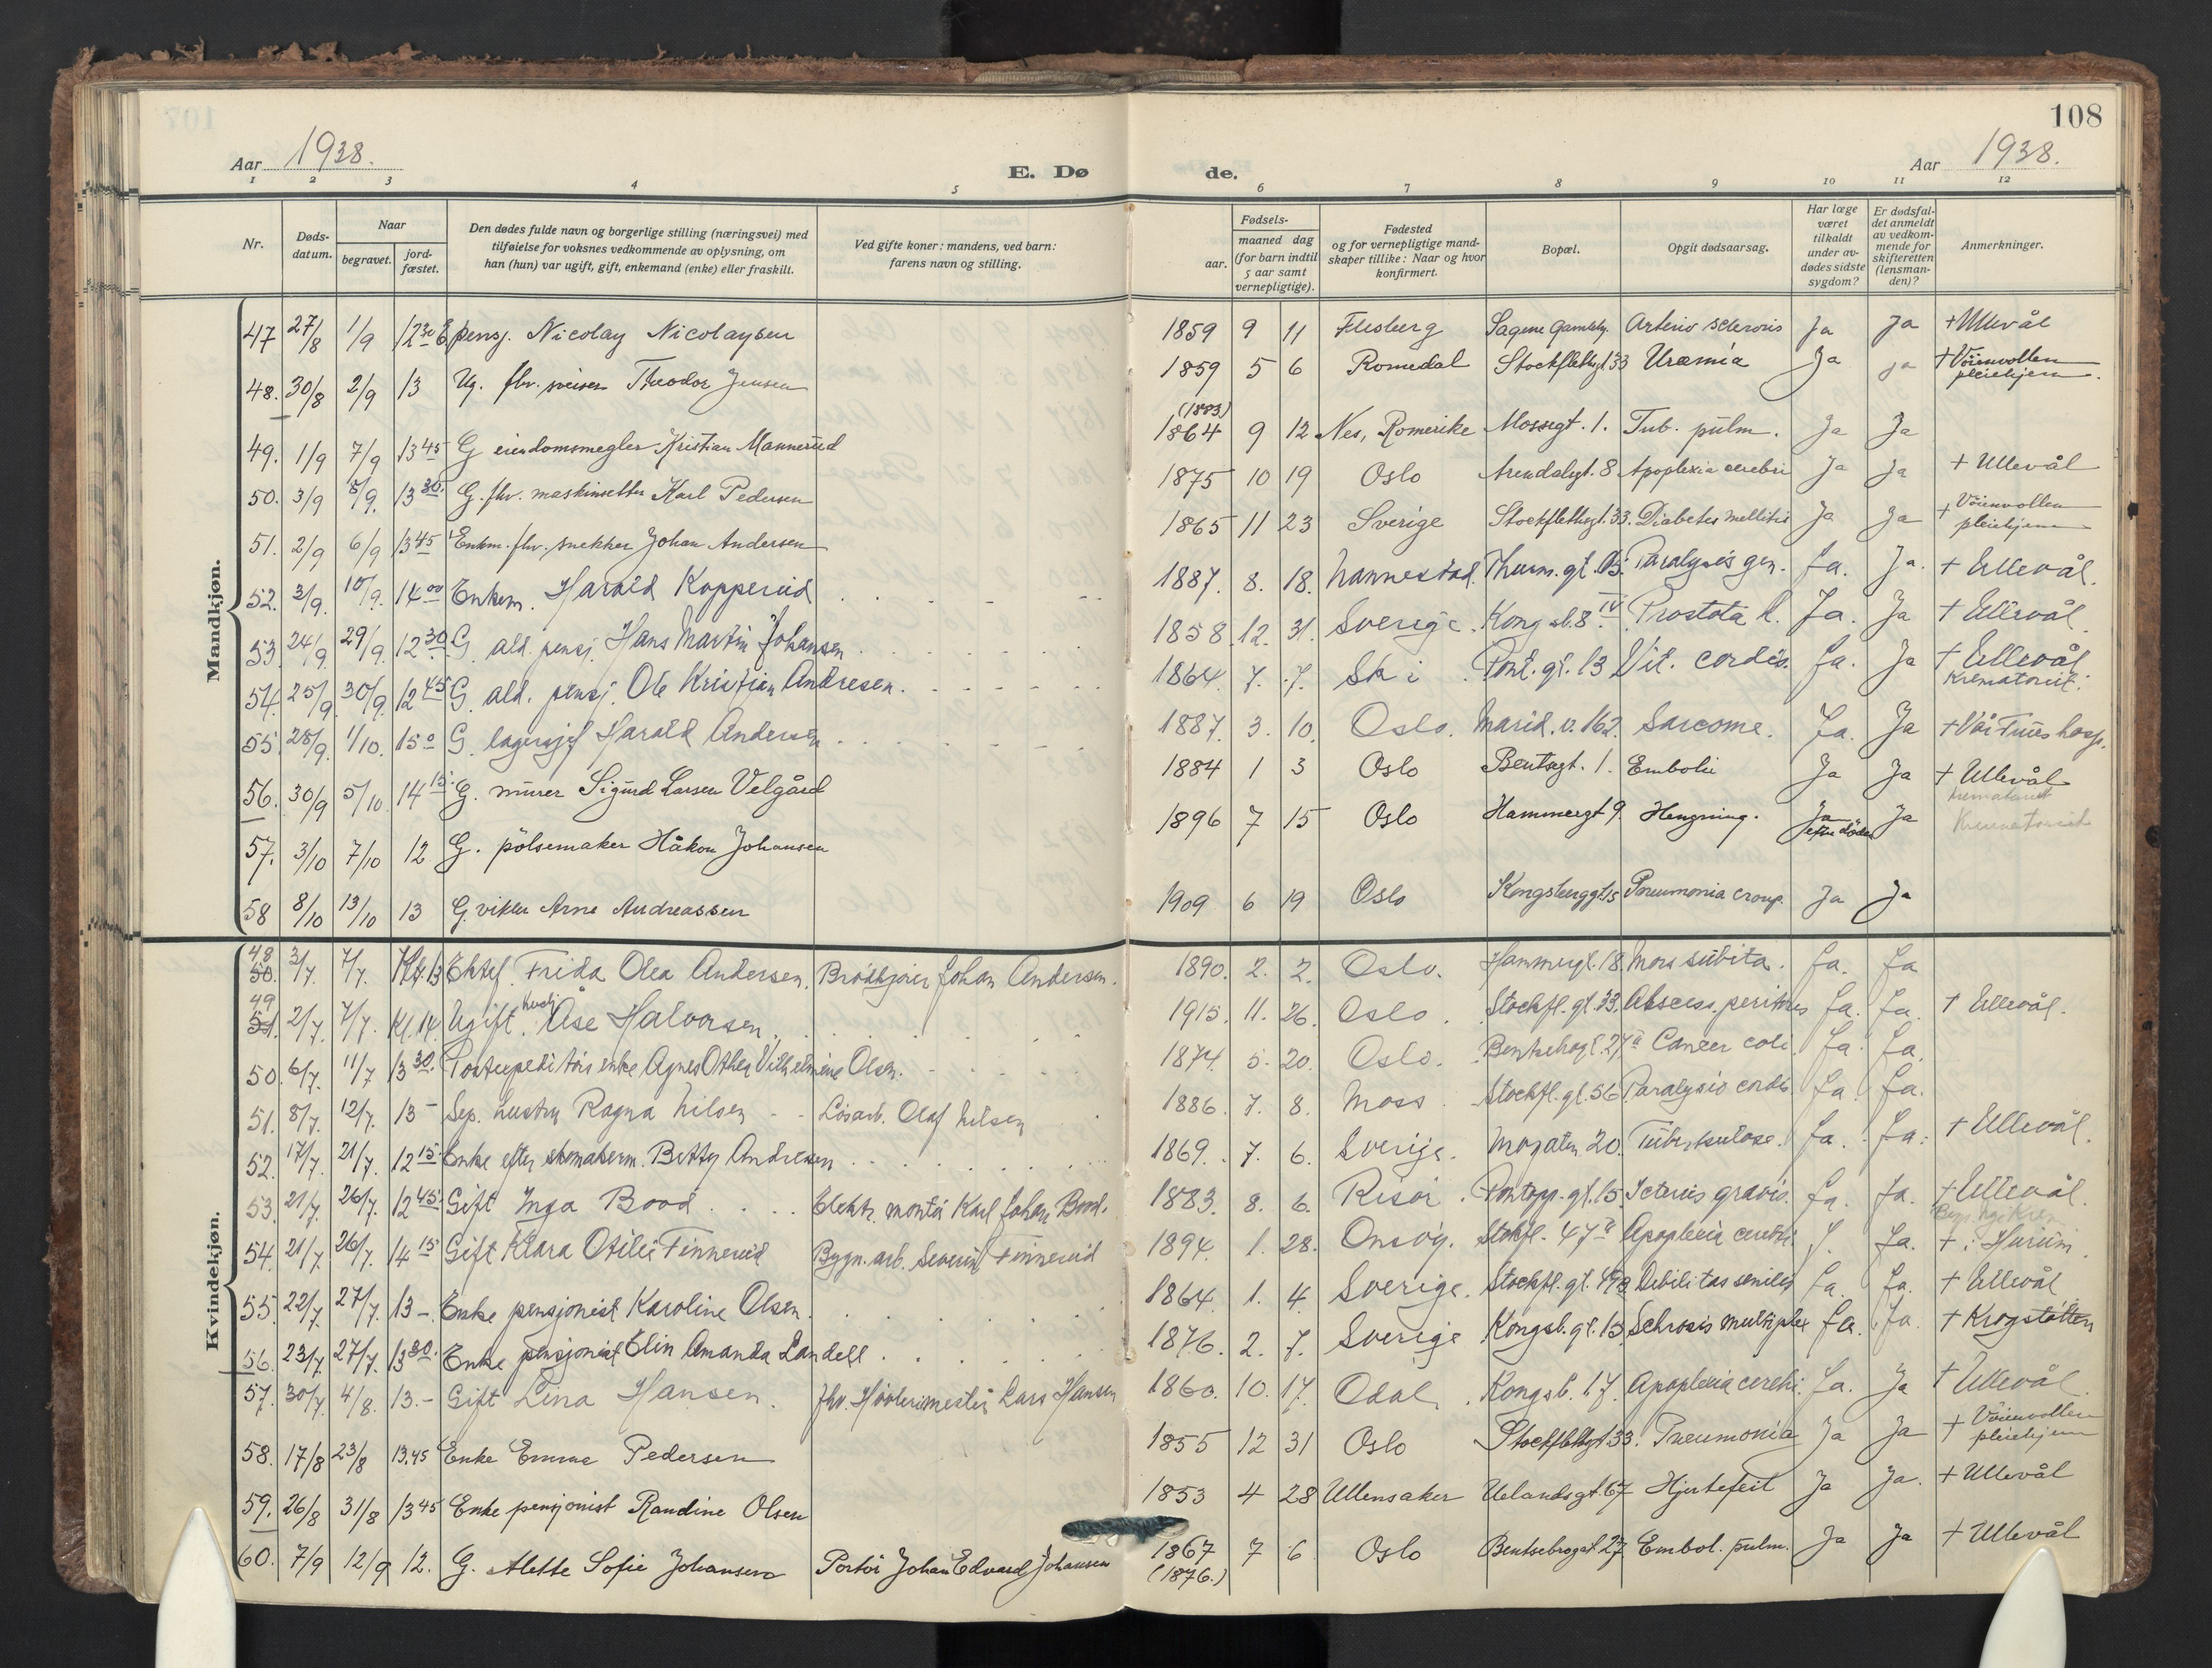 108
Aar 1938.
E. Dø
de.
Aar 1938.
1 2 3 4 5 6 7 8 9 10 11 12
Nr.
Døds-datum.
Naar
begravet.
jord-fæstet.
Den dødes fulde navn og borgerlige stilling (næringsvei) med
tilføielse for voksnes vedkommende av oplysning, om
han (hun) var ugift, gift, enkemand (enke) eller fraskilt.
Ved gifte koner: mandens, ved barn:
farens navn og stilling.
Fødsels-
aar.
maaned dag
(for barn indtil
5 aar samt
vernepligtige).
Fødested
og for vernepligtige mand-
skaper tillike: Naar og hvor
konfirmert.
Bopæl.
Opgit dødsaarsag.
Har læge
været
tilkaldt
under av-
dødes sidste
sygdom?
Er dødsfal-
det anmeldt
av vedkom-
mende for
skifteretten
(lensman-
den)?
Anmerkninger.
Mandkjøn.
47 27/8 1/9 12 30 pensj. Nicolay Nicolaysen 1859 9 11 Flesberg Sagene Gamlehj. Arterio sclerosis Ja Ja + Ullevål
48. 30/8 2/9 13 Ug. fhv. Theodor Jensen 1859 5 6 Romedal Stockflethsgt. 33 Uræmia Ja ja + Vöienvollen pleiehjem.
49. 1/9 7/9 13 45 G eiendomsmegler Kristian Mannerud (1883) 1864 9 12 Nes, Romerike Mossegt. 1. Tub. pulm. Ja Ja
50. 3/9 8/9. 13 30. G. fhv. maskinsetter Karl Pedersen 1875 10 19 Oslo Arendalsgt. 8 Apoplexia cerebri Ja Ja + Ullevål
51. 2/9 6/9 13 45 Enkm. fhv. snekker Johan Andersen 1865 11 23 Sverige Stockflethsgt. 33. Diabetes mellitis Ja Ja + Vöienvollen pleiehjem
52. 3/9. 10/9. 14 00 Enkem. Harald Kopperud 1887. 8. 18. Nannestad. Thurm. gt. Paralysis gen. Ja. Ja. + Ullevål.
53. 24/9. 29/9. 12 30. G. ald. pensj. Hans Martin Johansen 1858. 12. 31. Sverige. Kongsb. 8 IV Prostata h. Ja. Ja + Ullevål.
54. 25/9. 30/9. 12 45 G. ald. pensj. Ole Kristian Andresen. 1864. 7. 7. Ski Pont. gt. 13 Vit. cordis. Ja. Ja + Ullevål Krematoriet.
55 28/9. 1/10. 15 0 G. lagersjef Harald Andersen 1887. 3. 10. Oslo. Marid. v. 162. Sarcome. Ja. Ja + Vår Frues hosp.
56. 30/9 5/10 14 15. G. murer Sigurd Larsen Velgård 1884 1 3 Oslo Bentsegt. 1. Emboli Ja Ja + Ullevål krematoriet
57. 3/10 7/10 12 G. pölsemaker Håkon Johansen 1896 7 15 Oslo Hammergt 9. Hengning. Ja efter döden Ja Krematoriet
58 8/10 13/10 13 G. vikler Arne Andreassen 1909 6 19 Oslo Kongsberggt 15 Pneumonia croup. Ja Ja
Kvindekjøn.
48 50. 3/7. 7/7. Kl. 13 Ektef. Frida Olea Andersen. Brödkjörer Johan Andersen. 1890. 2. 2. Oslo. Hammergt. 18. Mors subita. Ja. Ja
49 51. 2/7. 7/7. Kl. 14. Ugift Åse Halvorsen. 1915. 11. 26. Oslo. Stockfl. gt. 33. Abscess. Ja. Ja. + Ullevål.
50. 6/7. 11/7 13 30. Postexpeditörs enke Agnes Othea Vilhelmine Olsen. 1874. 5. 20. Oslo. Bentsebrogt. 27 a Cancer coli. Ja. Ja.
51. 8/7. 12/7. 13 - Sep. hustru Ragna Nilsen - - Lösarb. Olaf Nilsen 1886. 7. 8. Moss. Stockfl. gt. 56 Paralysis cordis Ja. Ja.
52. 17/7. 21/7. 12 15. Enke efter skomakerm. Betty Andresen 1869. 7. 6. Sverige. Mogaten 20. Tuberkulose. Ja. Ja. + Ullevål.
53. 21/7. 26/7. 12 45. Gift Inga Bood Elektr. montör Karl Johan Bood. 1883. 8. 6. Risör. Pontopp. gt. 15. Icterus gravis. Ja. Ja. + Ullevål.
54. 21/7. 26/7. 14 15 Gift Klara Otilie Finnerud Bygn. arb. Severin Finnerud 1894. 1. 28. Onsöy. Stokfl. 47 a Apoplexia cerebri. J. Ja. + i Hurum.
55. 22/7. 27/7. 13 - Enke pensjonist Karoline Olsen. 1864. 1. 4. Sverige. Stockfl. gt. Debilitas senilis Ja. Ja. + Ullevål
56. 23/7. 27/7. 13 30. Enke pensjonist Elin Amanda Landell 1876. 2. 7. Sverige Kongsb. gt. 15. Sclerosis multiplex Ja. Ja. + Krogstötten
57. 30/7. 4/8. 13. - Gift Lina Hansen. fhv. Hövlerimester Lars Hansen 1860. 10. 17. Odal. Kongsb. 17. Apoplexia cerebri. Ja. Ja + Ullevål.
58. 17/8 23/8 13.45 Enke Emma Pedersen 1855 12 31 Oslo Stockflethsgt 33. Pneumonia Ja Ja + Vöienvollen pleiehjem
59. 26/8 31/8 13 45 Enke pensjonist Randine Olsen 1853 4 28 Ullensaker Uelandsgt. 67 Hjertefeil Ja Ja. + Ullevål
60. 7/9 12/9 12. G. Alette Sofie Johansen Portör Johan Edvard Johansen 1867 (1876.) 7 6 Oslo Bentsebrogat. 27 Embol. pulm. Ja Ja + Ullevål